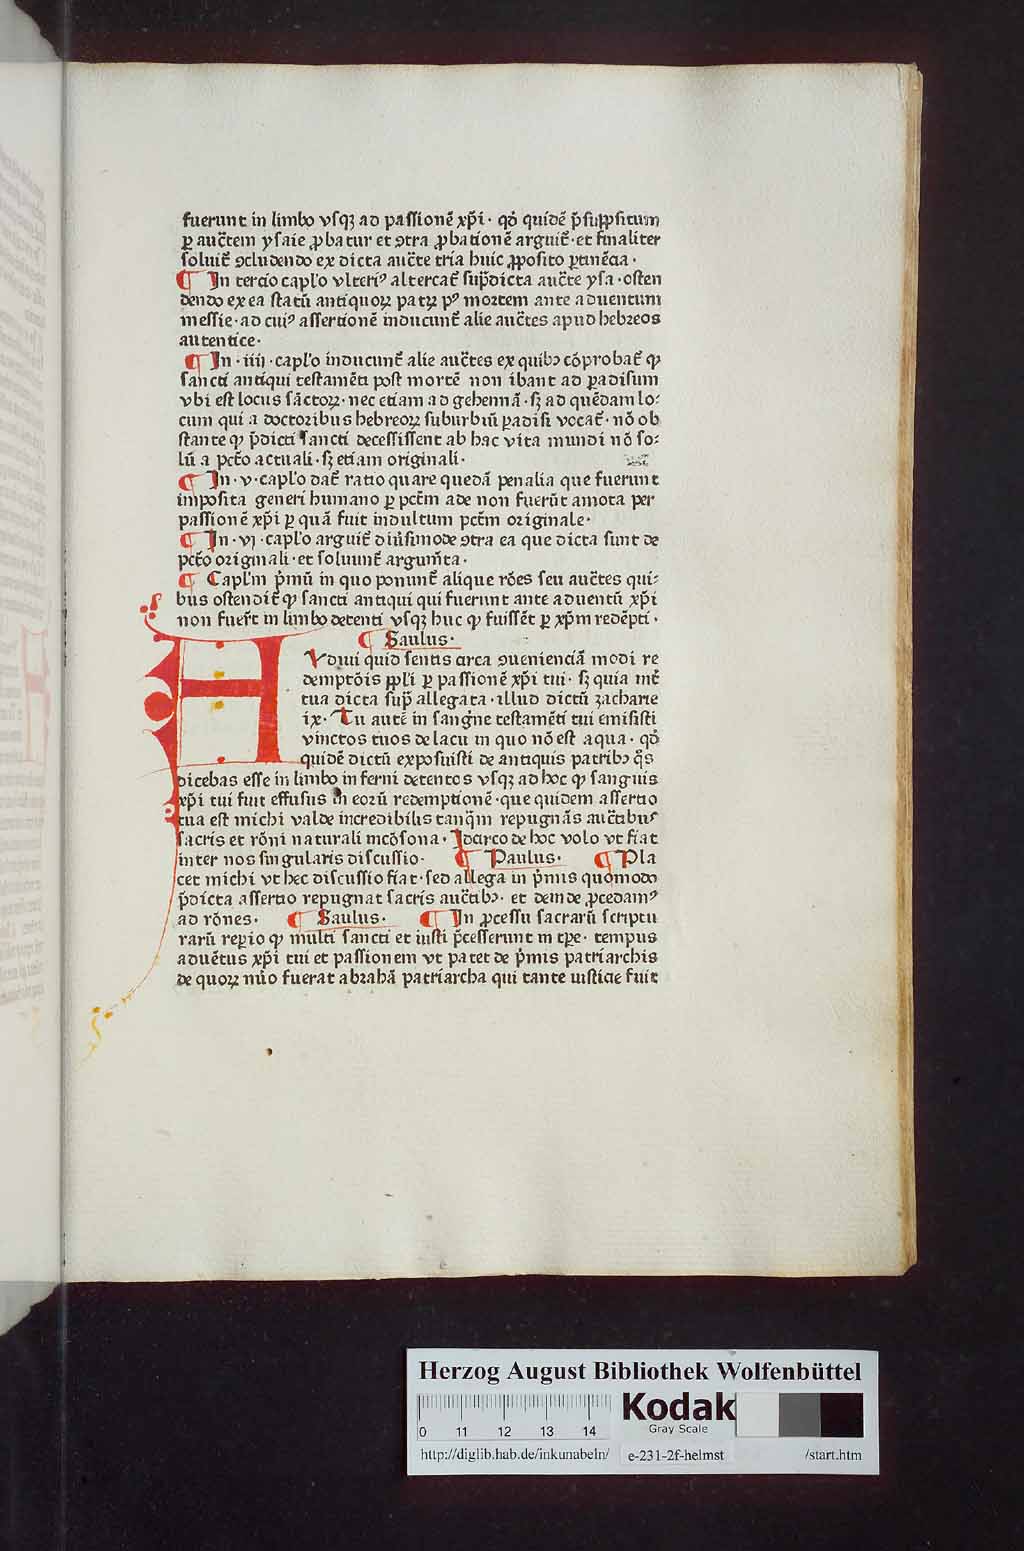 fuerunt in limbo vsqꝫ ad passionē xp̄i · qd̊ quidē p̄suppositum
ꝑ auct̄em ysaie ꝓbatur et ꝯtra ꝓbationē arguit᷑ · et finaliter
soluit᷑ ꝯcludendo ex dicta auct̄e tria huic ꝓposito ꝑtinētia ·
¶ In tercio capl̓o vlteri⁹ altercat᷑ sup̄dicta auct̄e ysa · osten
dendo ex ea statū antiquoꝝ patꝝ p⁹ mortem ante aduentum
messie · ad cui⁹ assertionē inducunt᷑ alie auct̄es apud hebreos
autentice ·
¶ In · iiij · capl̓o inducunt᷑ alie auct̄es ex quibꝰ cōprobat᷑ ꝙ
sancti antiqui testamēti post mortē non ibant ad ꝑadisum
vbi est locus sāctoꝝ · nec etiam ad gehennā · sꝫ ad quēdam lo⸗
cum qui a doctoribus hebreoꝝ suburbiū ꝑadisi vocat᷑ · nō ob
stante ꝙ p̄dicti sancti decessissent ab hac vita mundi nō so⸗
lū a pctō actuali · sꝫ etiam originali ·
¶ In · v · capl̓o dat᷑ ratio quare quedā penalia que fuerunt
imposita generi humano ꝑ pctm̄ ade non fuerūt amota per
passionē xp̄i ꝑ quā fuit indultum pctm̄ originale ·
¶ In · vj · capl̓o arguit᷑ diūsimode ꝯtra ea que dicta sunt de
pctō originali · et soluunt᷑ argum̄ta ·
¶ Capl̓m p̄mū in quo ponunt᷑ alique rōes seu auct̄es qui⸗
bus ostendit᷑ ꝙ sancti antiqui qui fuerunt ante aduentū xp̄i
non fuer̄t in limbo detenti vsqꝫ huc ꝙ fuissēt ꝑ xp̄m redēpti ·
¶ Saulus ·
AVdiui quid sentis circa ꝯuenienciā modi re
demptōis ppl̓i ꝑ passionē xp̄i tui · sꝫ quia int᷑
tua dicta sup̄ allegata · illud dictū zacharie
ix · Tu autē in sangn̄e testamēti tui emisisti
vinctos tuos de lacu in quo nō est aqua · qd̊
quidē dictū exposuisti de antiquis patribꝰ q̄s
dicebas esse in limbo inferni detentos vsqꝫ ad hoc ꝙ sanguis
xp̄i tui fuit effusus in eorū redemptionē · que quidem assertio
tua est michi valde incredibilis tanq̄m repugnās auct̄ibus
sacris et rōni naturali incōsona · Idcirco de hoc volo vt fiat
inter nos singularis discussio · ¶ Paulus · ¶ Pla
cet michi vt hec discussio fiat · sed allega in p̄mis quomodo
p̄dicta assertio repugnat sacris auct̄ibꝰ · et deinde ꝓcedam⁹
ad rōnes · ¶ Saulus · ¶ In ꝓcessu sacrarū scriptu
rarū reꝑio ꝙ multi sancti et iusti p̄cesserunt in tꝑe · tempus
aduētus xp̄i tui et passionem vt patet de p̄mis patriarchis
de quoꝝ nūo fuerat abrahā patriarcha qui tante iusticie fuit
Herzog August Bibliothek Wolfenbüttel
0 11 12 13 14
Kodak
Gray Scale
http://diglib.hab.de/inkunabeln/ e-231-2f-helmst /start.htm